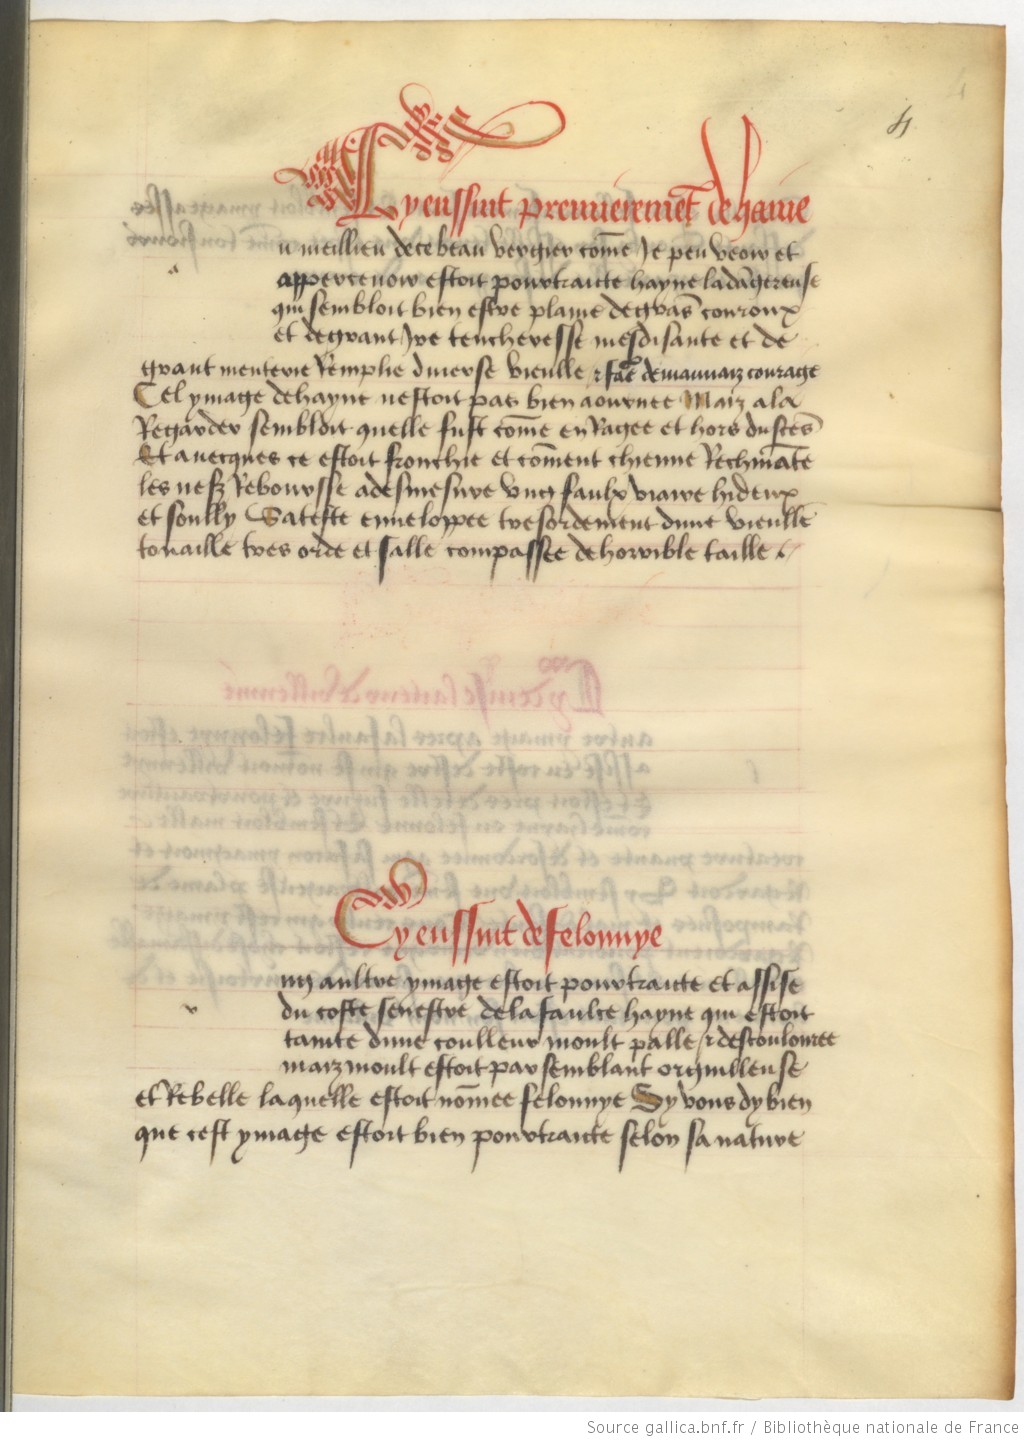 4
Cy enssuit premierem̃et de haine
u meillieu de ce beau vergier cõme Je peu veoir et
appercevoir estoit pourtraicte hayne la dãgereuse
qui sembloit bien estre plaine de grãs couroux
et de grant Jre tencheresse mesdisante et de
grant menterie Remplie diverse vieulle & faẽ de mauvaiz courage
Cel ymage de hayne nestoit pas bien aournee Maiz a la
Regarder sembloit quelle fust cõme enRagee et hors du sẽs
Et avecques ce estoit fronchie et cõment chienne Rechinãte
le nesz Reboursse a desmesure ung faulx viaire hideux
et soully Sa teste enveloppee tresordement dune vieulle
touaille tres orde et salle compassee de horrible taille
Cy enssuit de felonnye
ung aultre ymage estoit pourtraicte et assise
du coste senestre de la faulce hayne qui estoit
tainte dune coulleur moult palle & descoulouree
maiz moult estoit par semblant orguilleuse
et Rebelle laquelle estoit nõmee felonnye Sy vous dy bien
que cest ymage estoit bien pourtraicte selon sa nature
Source gallica.bnf.fr / Bibliothèque nationale de France